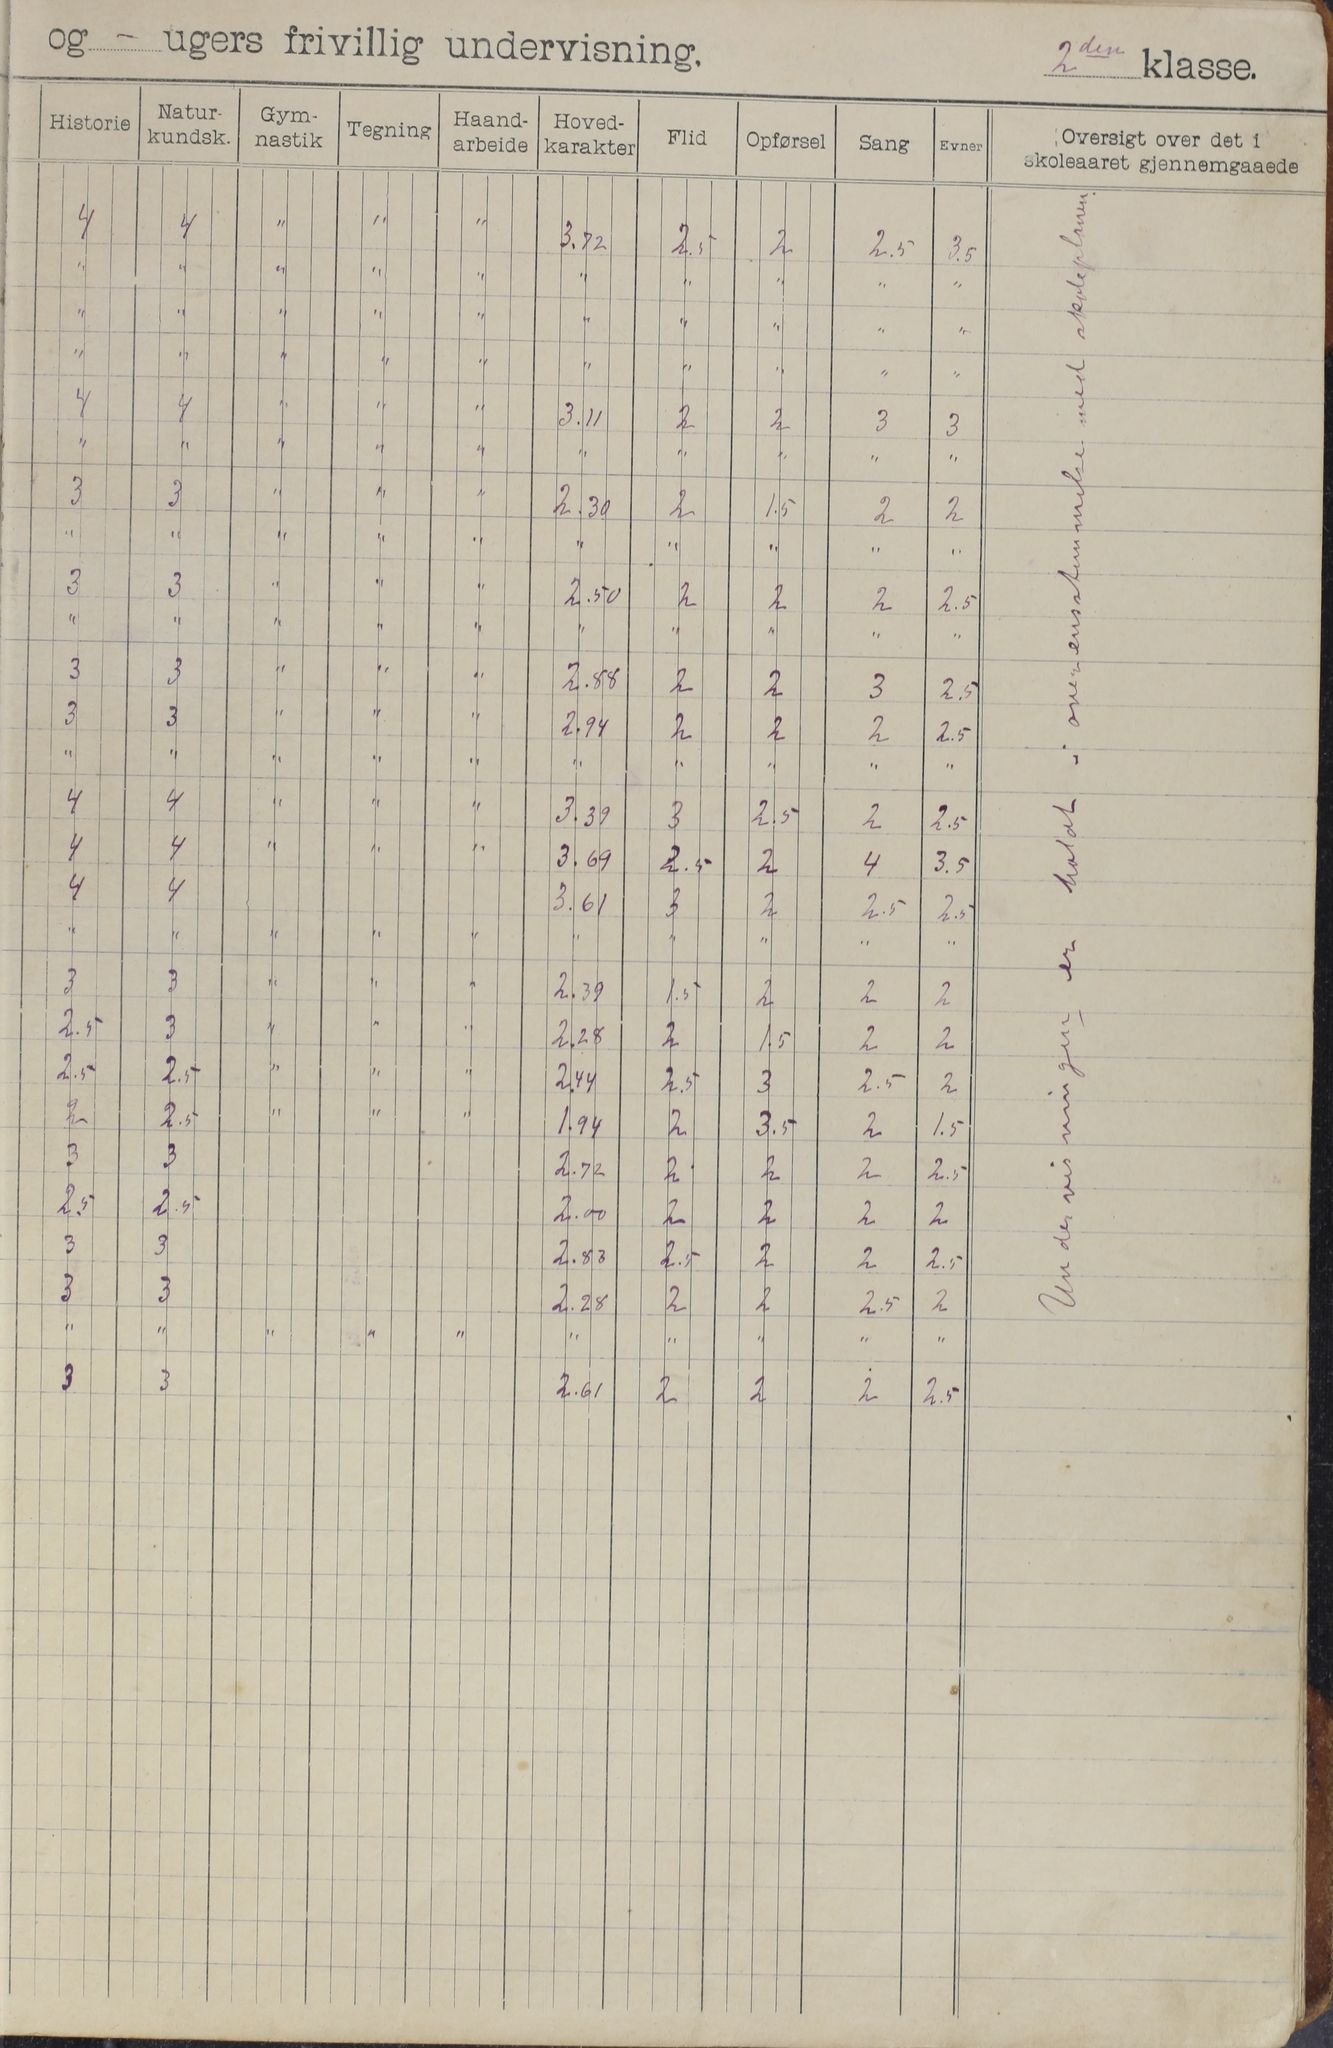 og - ugers frivillig undervisning. 2den klasse.
Historie Natur-kundsk. Gym-nastik Tegning Haand-arbeide Hoved-karakter Flid Opførsel Sang Evner Oversigt over det i skoleaaret gjennemgaaede
4 4 " " " 3.72 2.5 2 2.5 3.5
" " " " " " " " " "
" " " " " " " " " "
" " " " " " " " " "
4 4 " " " 3.11 2 2 3 3
" " " " " " " " " "
3 3 " " " 2.30 2 1.5 2 2
" " " " " " " " " "
3 3 " " " 2.50 2 2 2 2.5
" " " " " " " " " "
3 3 " " " 2.88 2 2 3 2.5
3 3 " " " 2.94 2 2 2 2.5
" " " " " " " " " "
4 4 " " " 3.39 3 2.5 2 2.5
4 4 " " " 3.69 2.5 2 4 3.5
4 4 3.61 3 2 2.5 2.5
" " " " " " " " " "
3 3 " " " 2.39 1.5 2 2 2
2.5 3 " " " 2.28 2 1.5 2 2
2.5 2.5 " " " 2.44 2.5 3 2.5 2
2 2.5 " " " 1.94 2 3.5 2 1.5
3 3 2.72 2 2 2 2.5
2.5 2.5 2.00 2 2 2 2
3 3 2.83 2.5 2 2 2.5
3 3 2.28 2 2 2.5 2
" " " " " " " " " "
3 3 2.61 2 2 2 2.5
Undervisningen er holdt i overensstemmelse med skoleplanen.